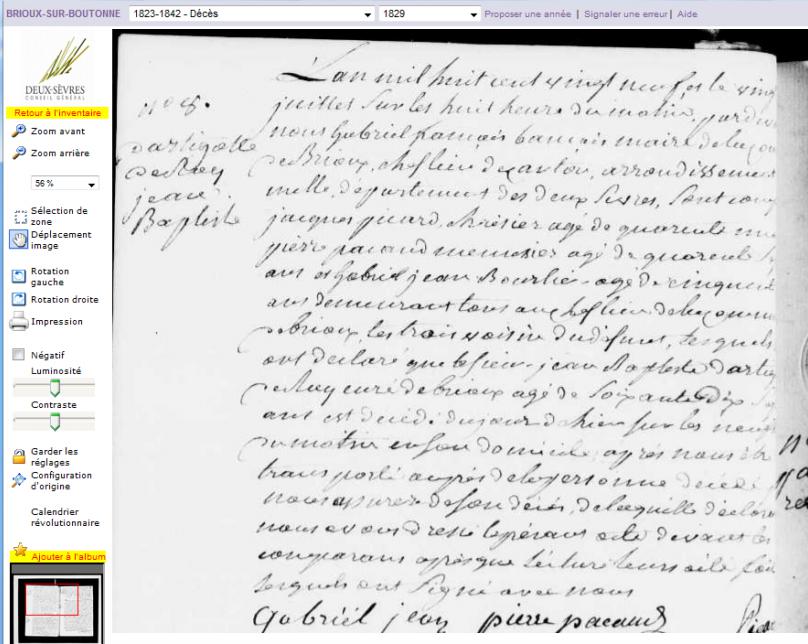 BRIOUX-SUR-BOUTONNE
1823-1842 - Décès
1829
Proposer une année | Signaler une erreur | Aide
DEUX-SÈVRES
CONSEIL GÉNÉRAL
Retour à l'inventaire
Zoom avant
Zoom arrière
56 %
Sélection de
zone
Déplacement
image
Rotation
gauche
Rotation droite
Impression
Négatif
Luminosité
Contraste
Garder les
réglages
Configuration
d'origine
Calendrier
révolutionnaire
Ajouter à l'album
n° 8.
jean
Baptiste
L'an mil huit cent vingt neuf et le ving
juillet sur les huit heures du matin, par
nous Gabriel françois maire de la
de Brioux, chef lieu de canton, arrondissement
melle, département des deux Sevres, sont
jacques picard, agé de quarente
pierre pacaud menuisier agé de quarente
ans et Gabriel jean Bourlier agé de cinquen
ans demeurant tous au chef lieu de la
brioux, les trois voisin du defunt, lesquels
ont declaré que le sieur jean Baptiste
curé de brioux agé de Soixante Dix
ans est decedé du jour d'hier sur les neuf
du matin en son domicile, après nous être
transporté auprès de la personne decedé
nous assurer de son decès, de laquelle
nous avons dressé le présent acte devant les
comparans après que lecture leurs aité
lesquels ont signé avec nous
Gabriel jean pierre pacaud